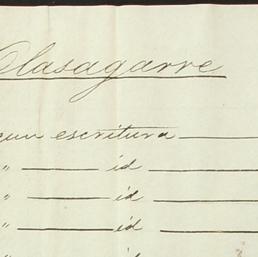 Olasagarre
gun escritura
" id
" id
" id
" id
id